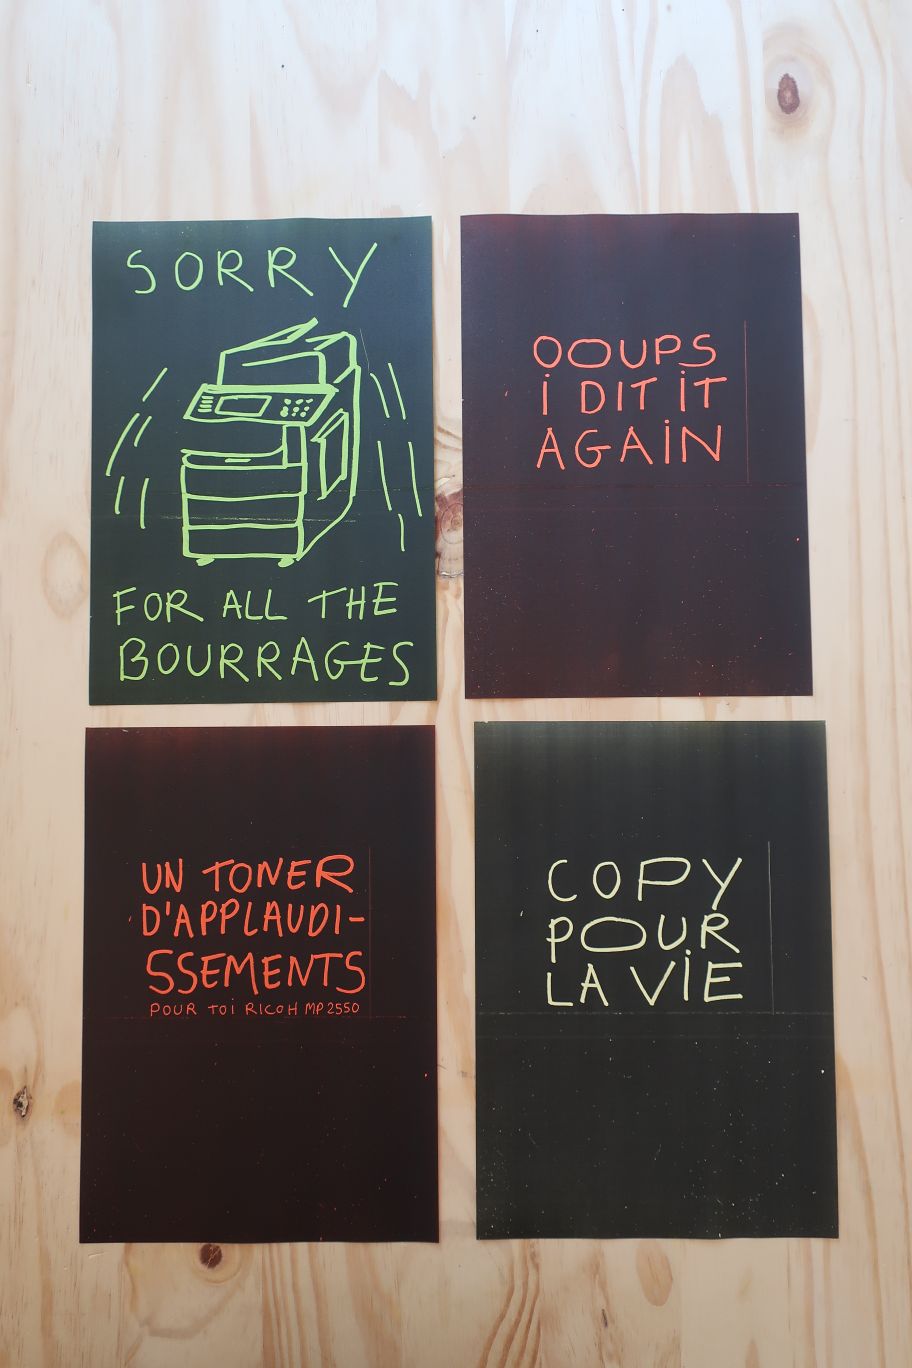 SORRY
FOR ALL THE
BOURRAGES
OOUPS
i DIT iT
AGAiN
UN TONER
D'APPLAUDI-
SSEMENTS
POUR TOi RICOH MP 2550
COPY
POUR
LA ViE